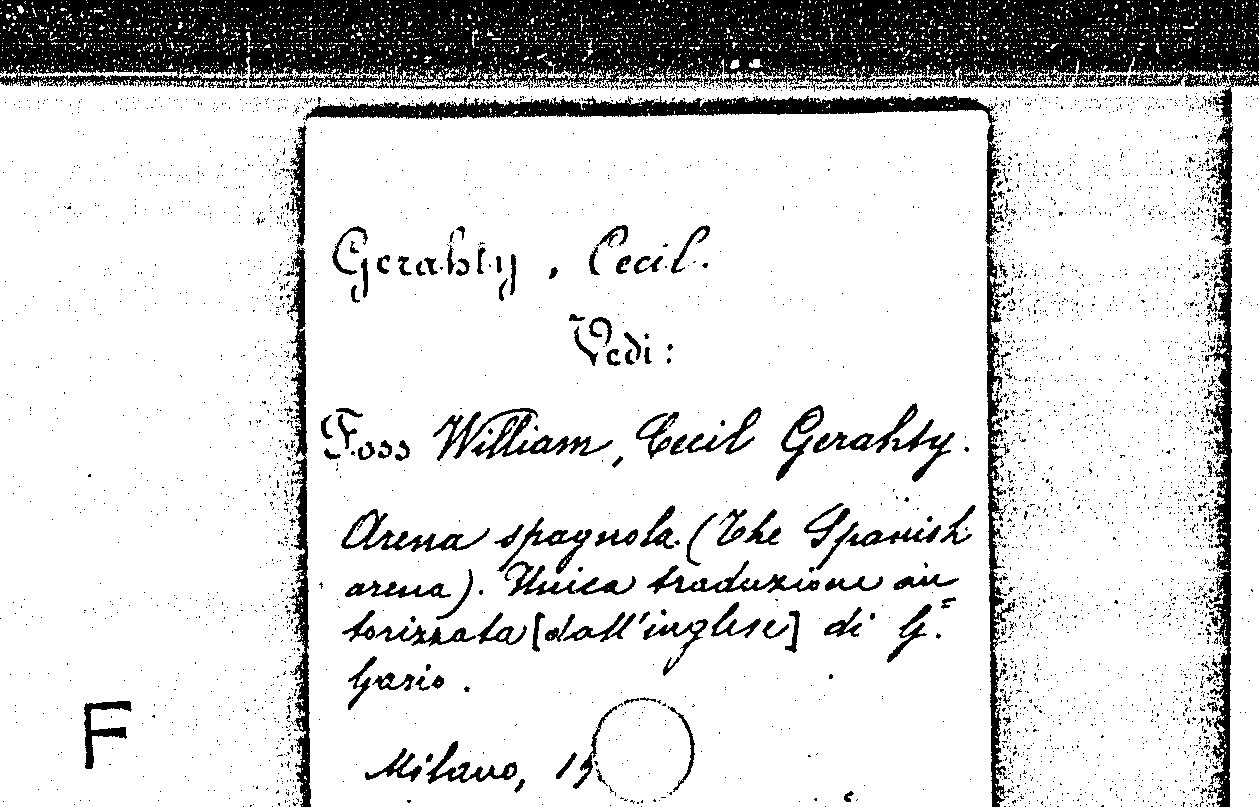 Gerahty, Cecil.
Vedi:
Foss William, Cecil Gerahty.
Arena spagnola. (The Spanish
arena). Unica traduzione au
torizzata [dall'inglese] di G.
Gario.
F
Milano, 19